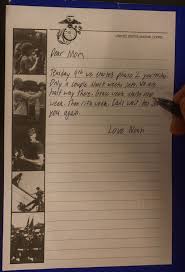 UNITED STATES MARINE CORPS
Dear Mom,
we started phase 2 yesterday.
Only a couple short weeks left. We are
half way there. Grass week starts next
week. Then fire week. Can't wait to see
you again.
Love Noah